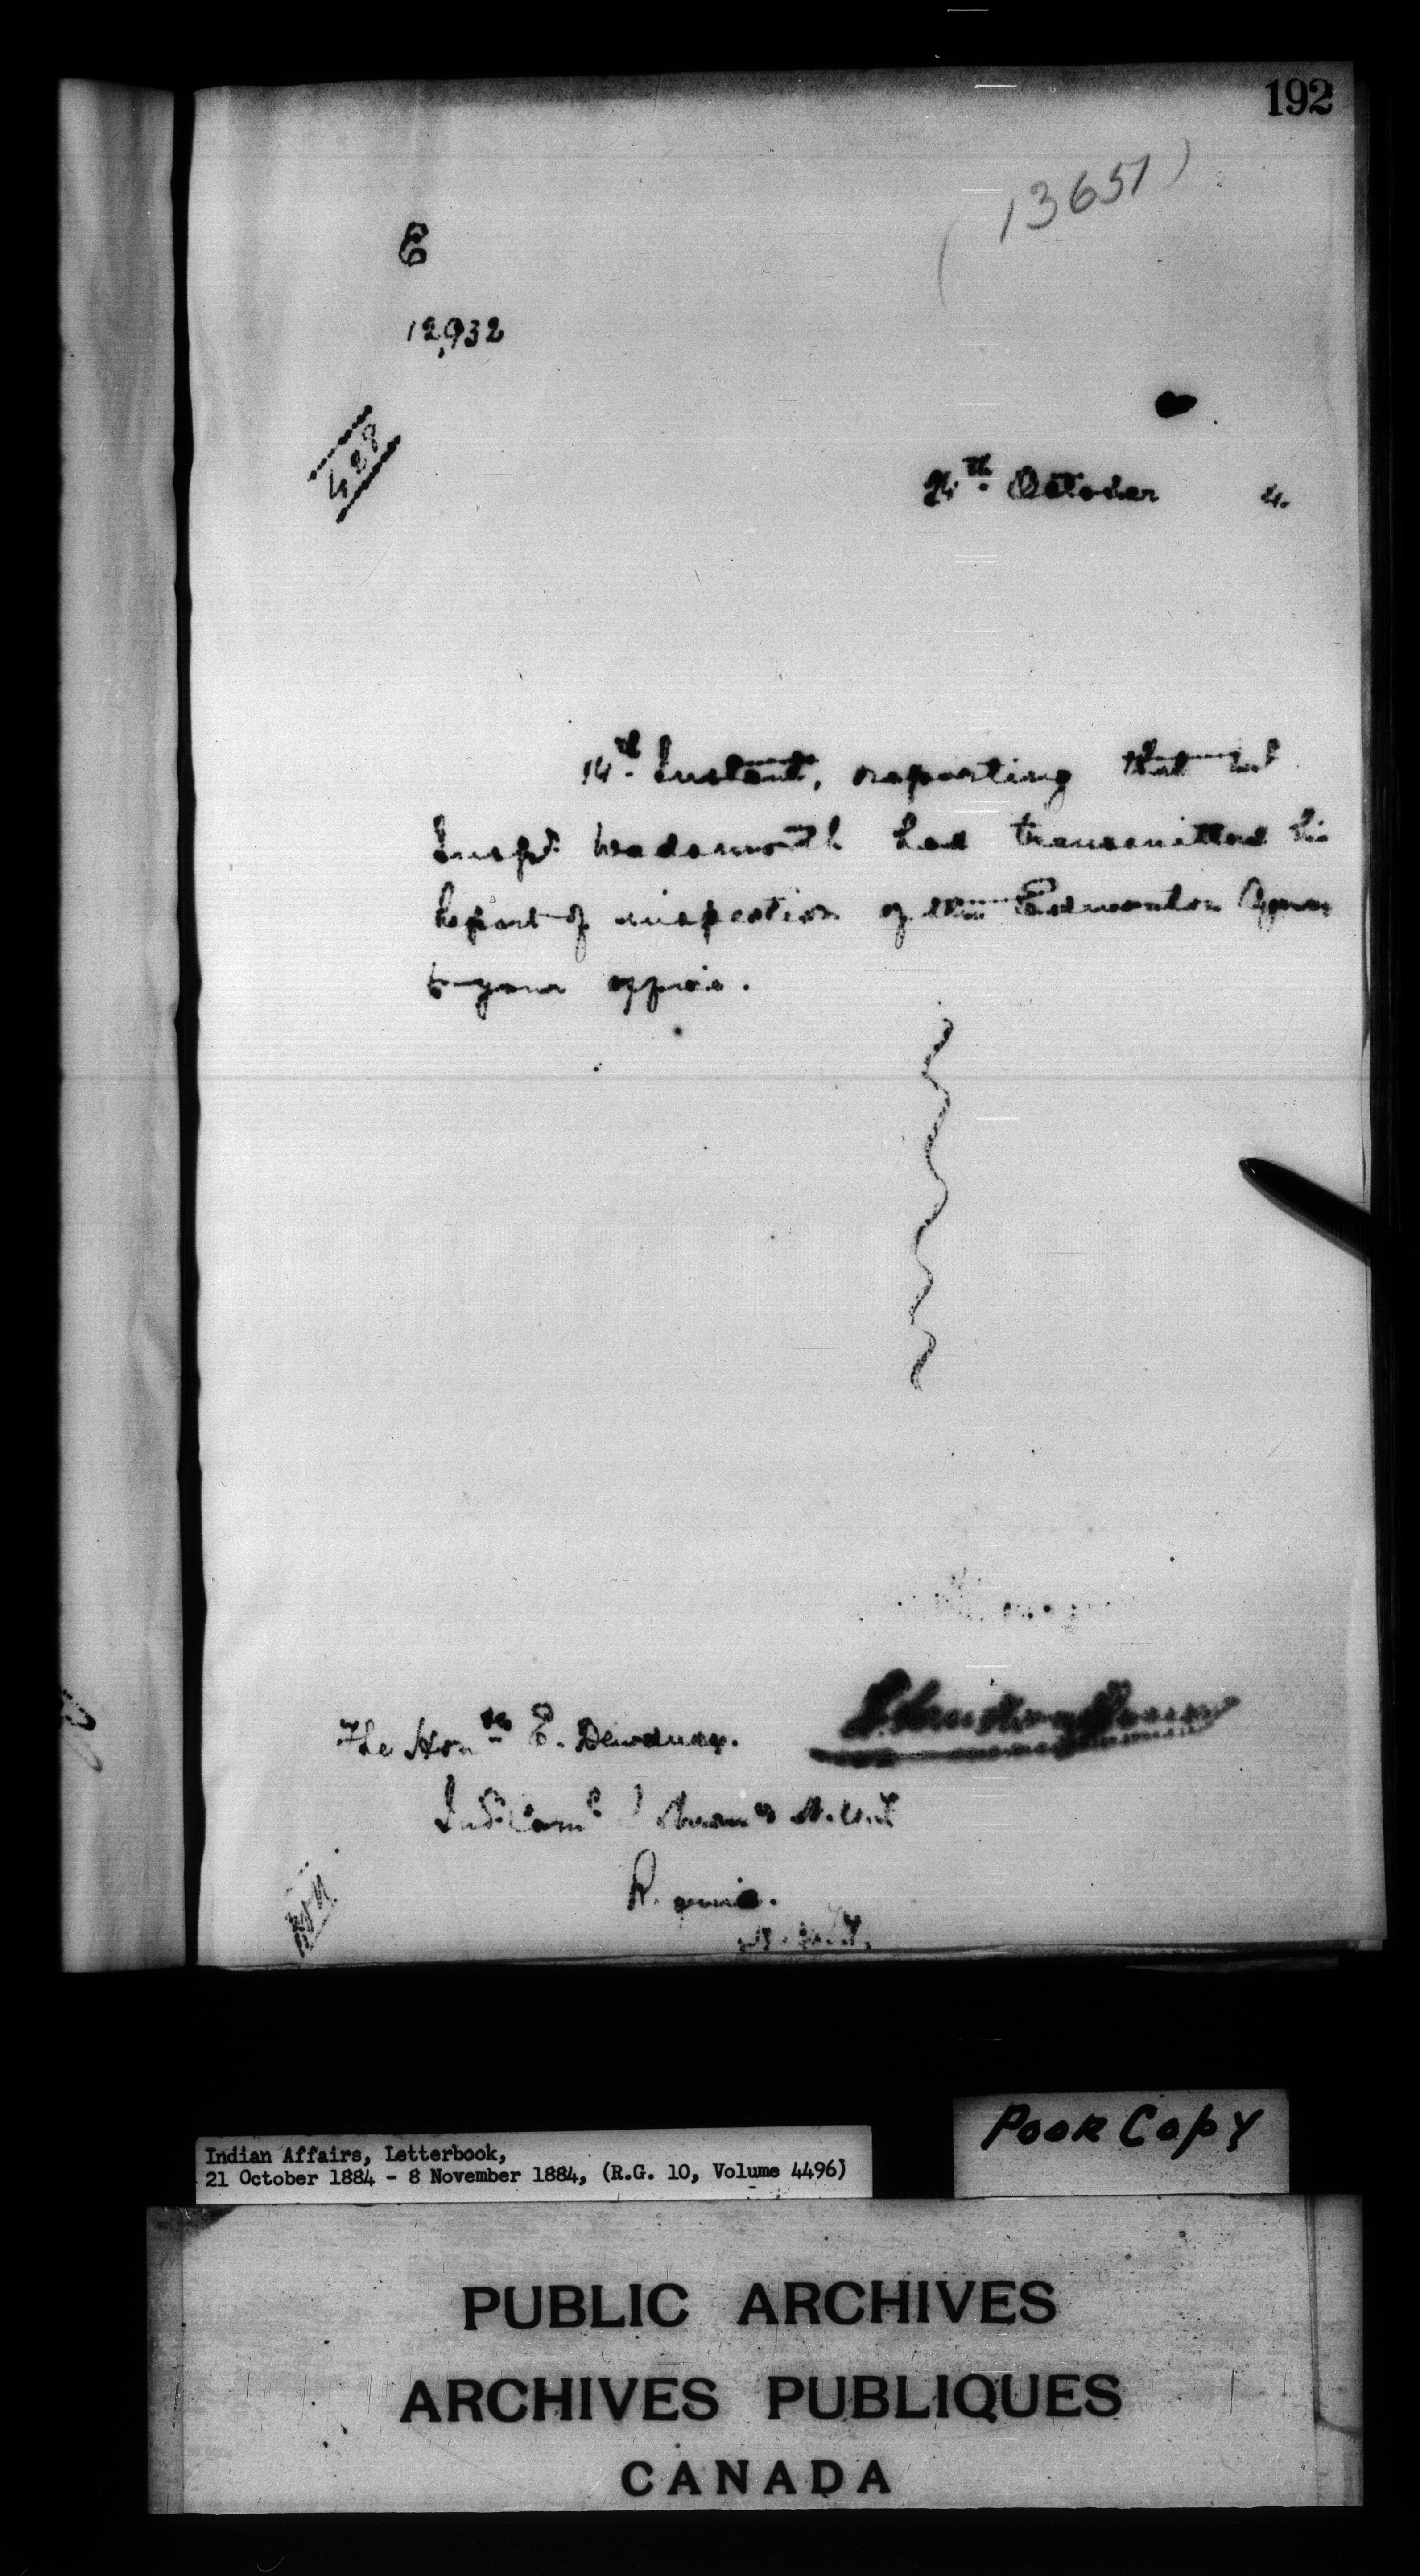 192
(13651)
E
12,932
428
24th. October 4.
14th. Instant, reporting that
Inspr. Wadsworth had transmitted his
Report of inspection of the Edmonton Agency
to your office.
The Honble E. Dewdney.
Ind. Comr N.W.T
Regina.
N.W.T.
Poor Copy
Indian Affairs, Letterbook,
21 October 1884 - 8 November 1884, (R.G. 10, Volume 4496)
PUBLIC ARCHIVES
ARCHIVES PUBLIQUES
CANADA